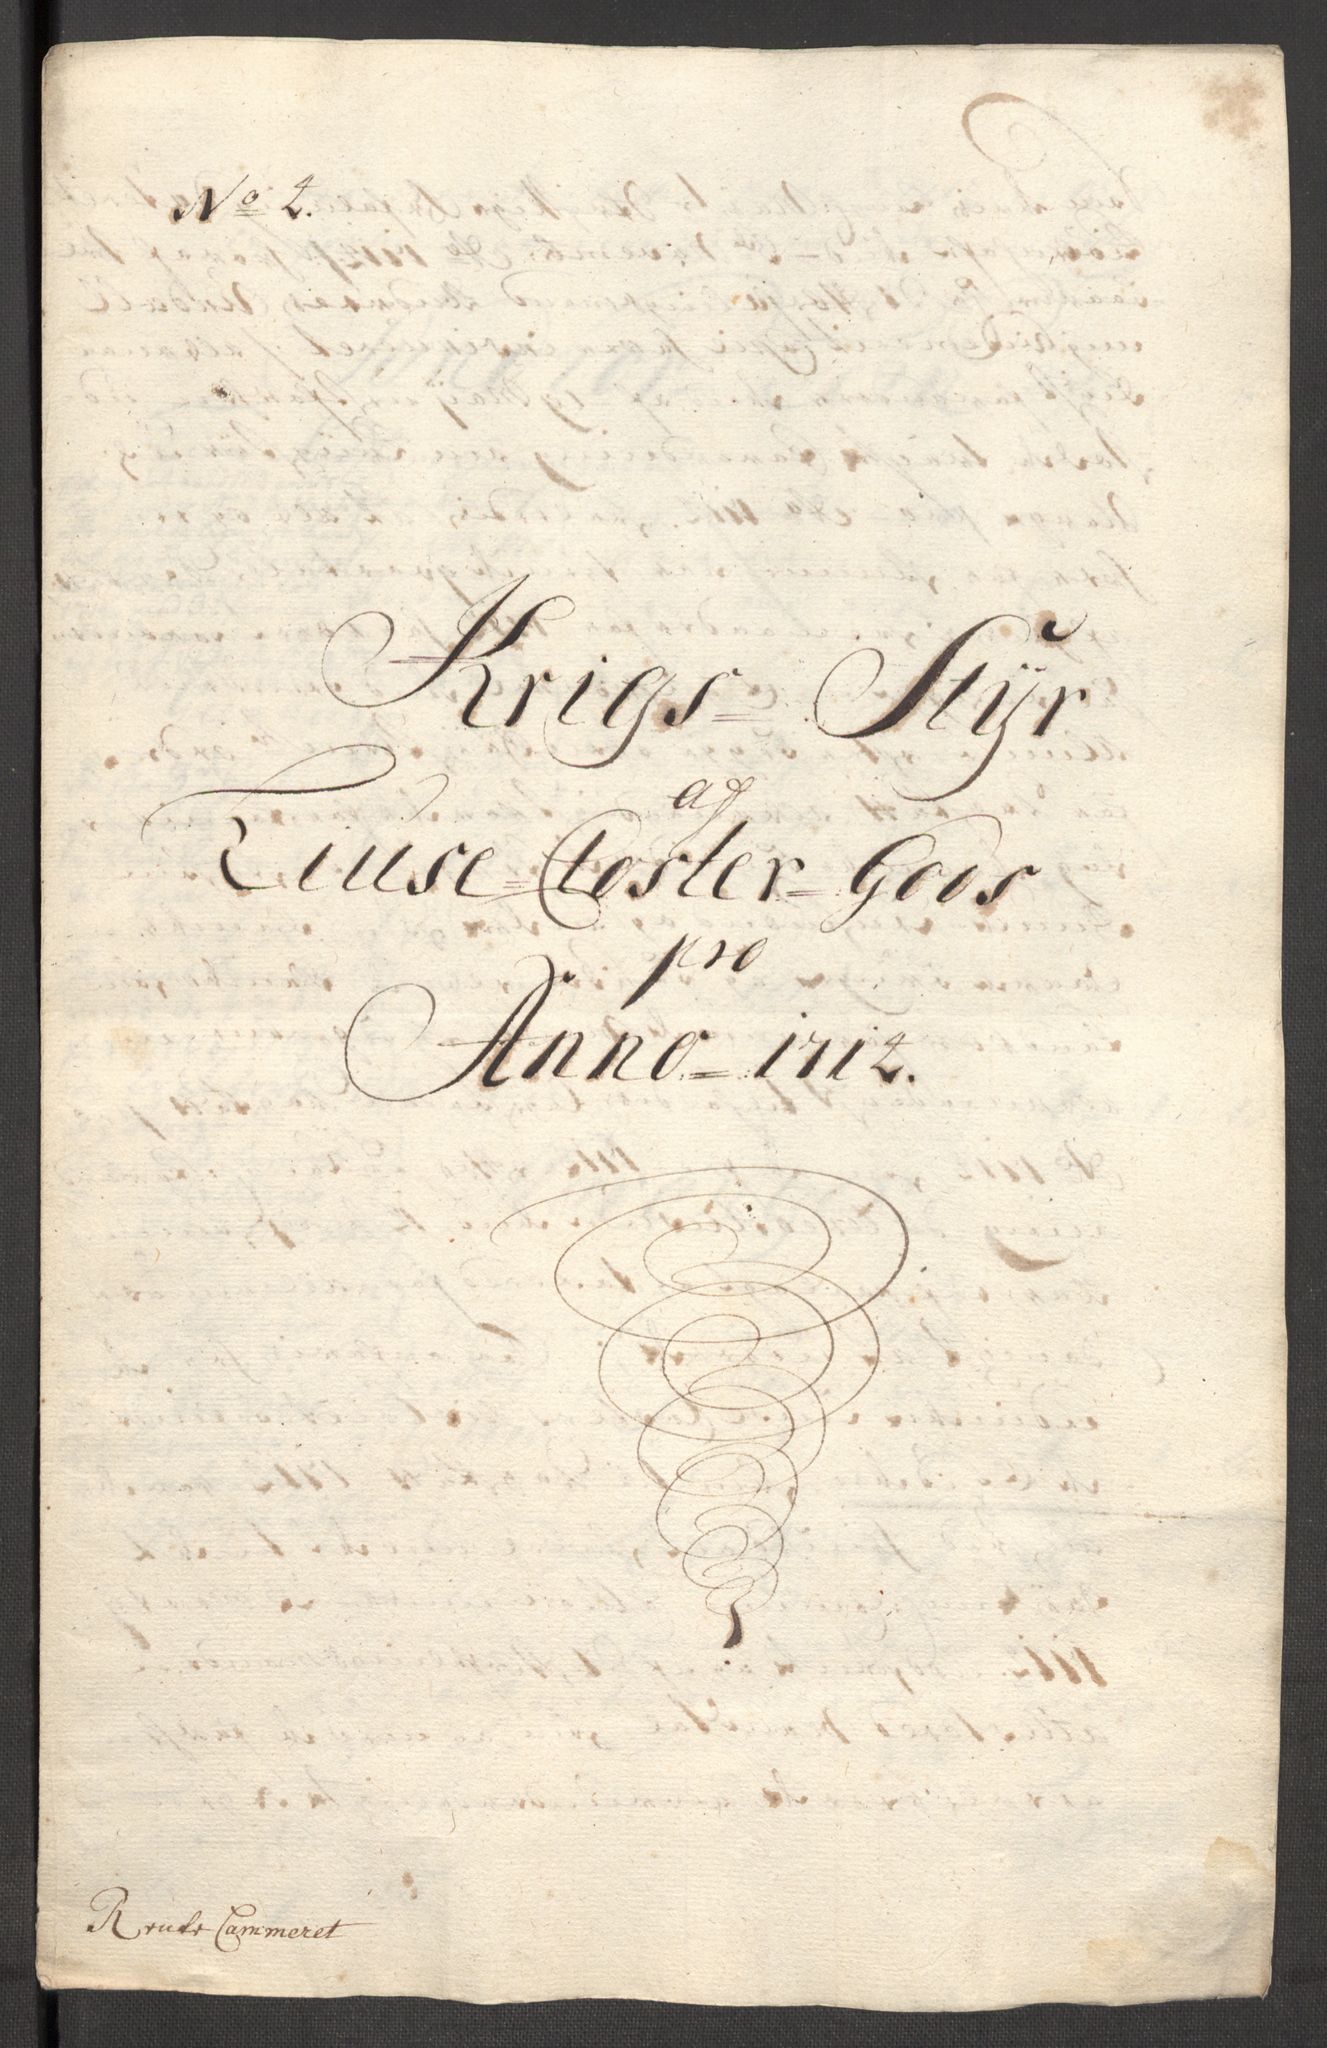 No 2.
Krigs= Stÿr
af
Liuse=Closter=Gods
pro
Anno=1712.
Rente Cammeret